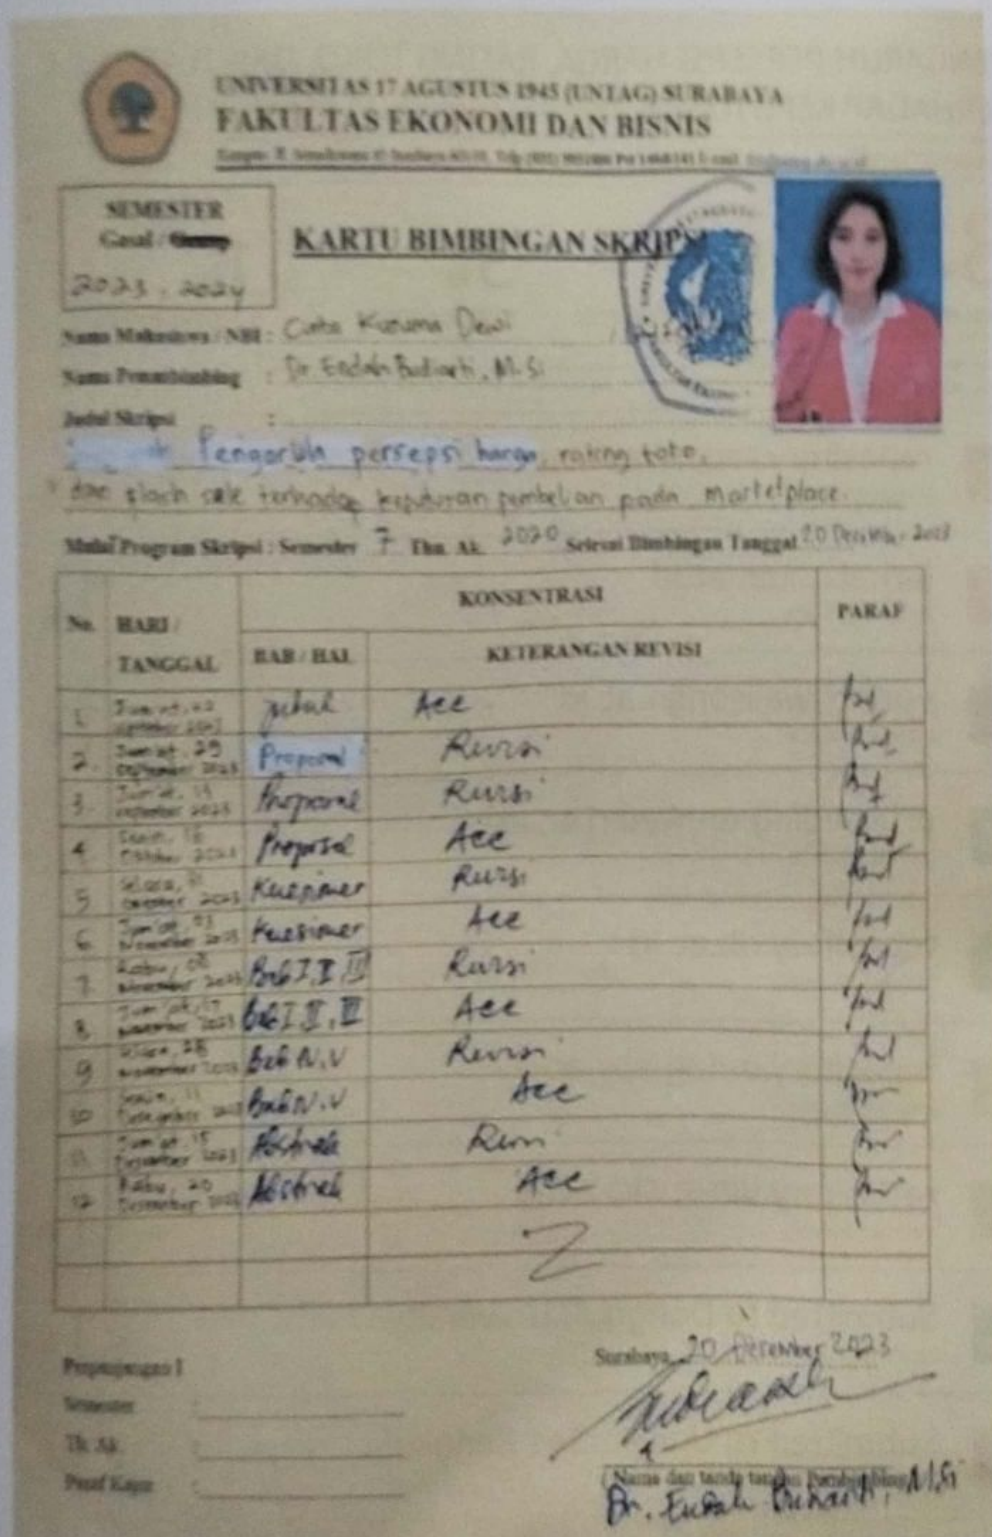 UNIVERSITAS 17 AGUSTUS 1945 (UNTAG) SURABAYA
FAKULTAS EKONOMI DAN BISNIS
SEMESTER
Gasal /
2023 - 2024
KARTU BIMBINGAN SKRIPSI
Nama Mahasiswa / NBI : Kusuma Dewi
Nama Pembimbing : Dr. Endah Budiarti, M.Si
Judul Skripsi :
Pengaruh persepsi harga, rating toko,
dan flash sale terhadap keputusan pembelian pada marketplace.
Mulai Program Skripsi : Semester 7 Thn. Ak. 2020 Selesai Bimbingan Tanggal 20 Desember 2023
No. HARI / TANGGAL KONSENTRASI PARAF
BAB / HAL KETERANGAN REVISI
1. Judul Acc
2. Jum'at, 29 September 2023 Proposal Revisi
3. Proposal Revisi
4. Senin, 16 Oktober 2023 Proposal Acc
5. Selasa, Oktober 2023 Kuesioner Revisi
6. Jum'at, 03 November 2023 Kuesioner Acc
7. Rabu, 08 November 2023 Bab I, II, III Revisi
8. Jum'at, 17 November 2023 Bab I, II, III Acc
9. Selasa, 28 November 2023 Bab IV, V Revisi
10. Senin, 11 Desember 2023 Bab IV, V Acc
11. Jum'at, 15 Desember 2023 Abstrak Revisi
12. Rabu, 20 Desember 2023 Abstrak Acc
Surabaya, 20 Desember 2023
Perpanjangan I
Semester :
Th. Ak. :
Paraf Kapro :
( Nama dan tanda tangan Pembimbing )
Dr. Endah Budiarti, M.Si